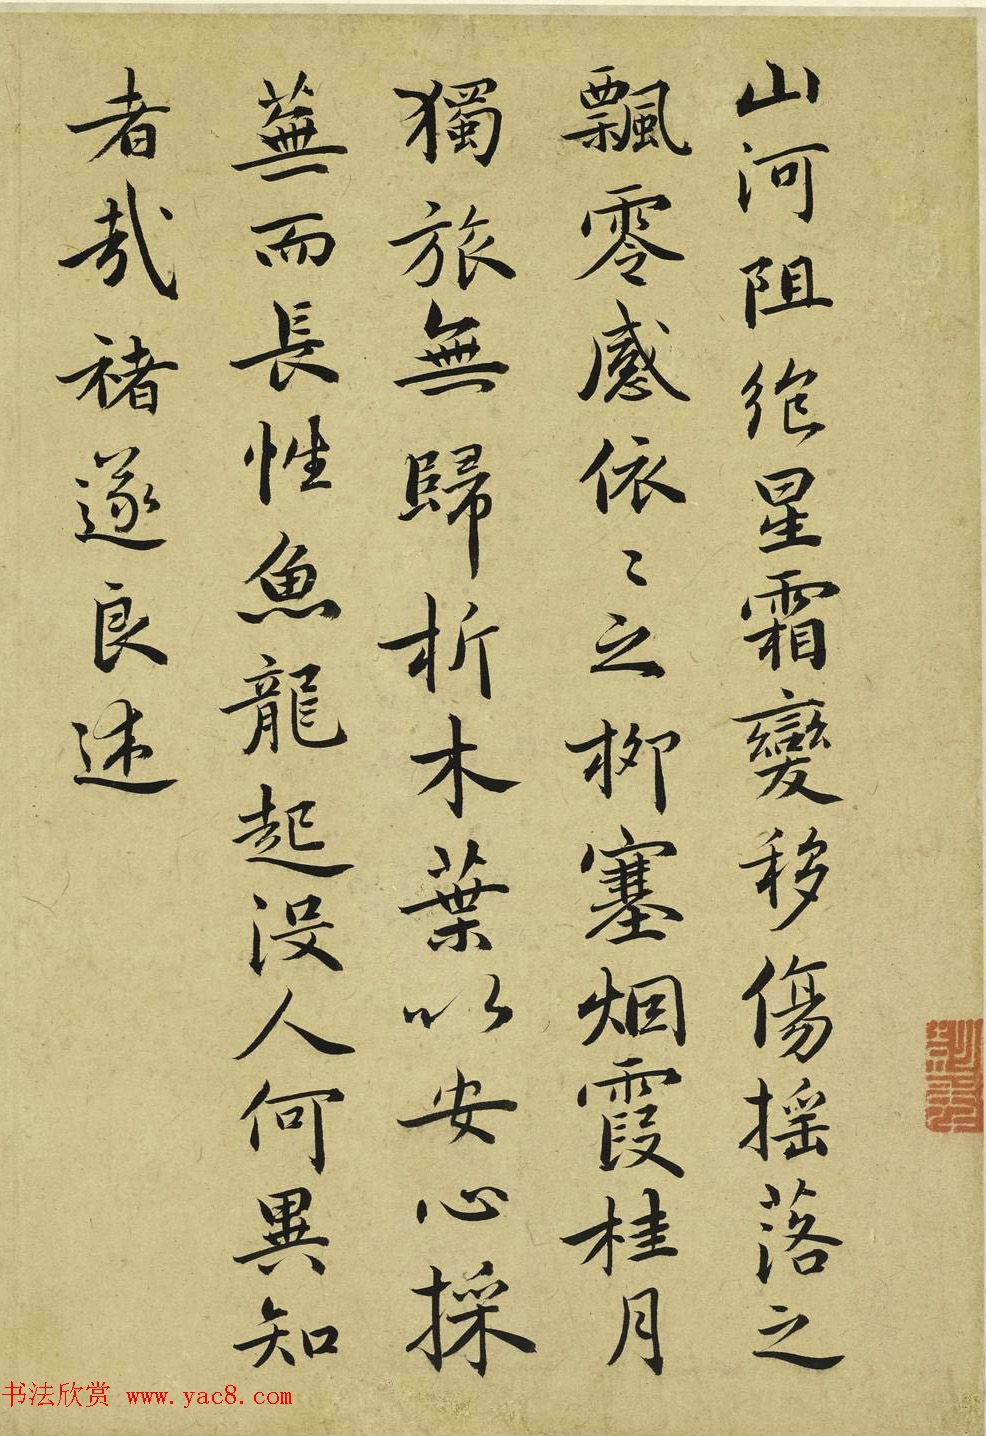 山河阻絶星霜變移傷摇落之
飄零感依〻之柳塞烟霞桂月
獨旅無歸折木葉以安心採
蕪而長性魚龍起没人何異知
者哉褚遂良述
书法欣赏 www.yac8.com